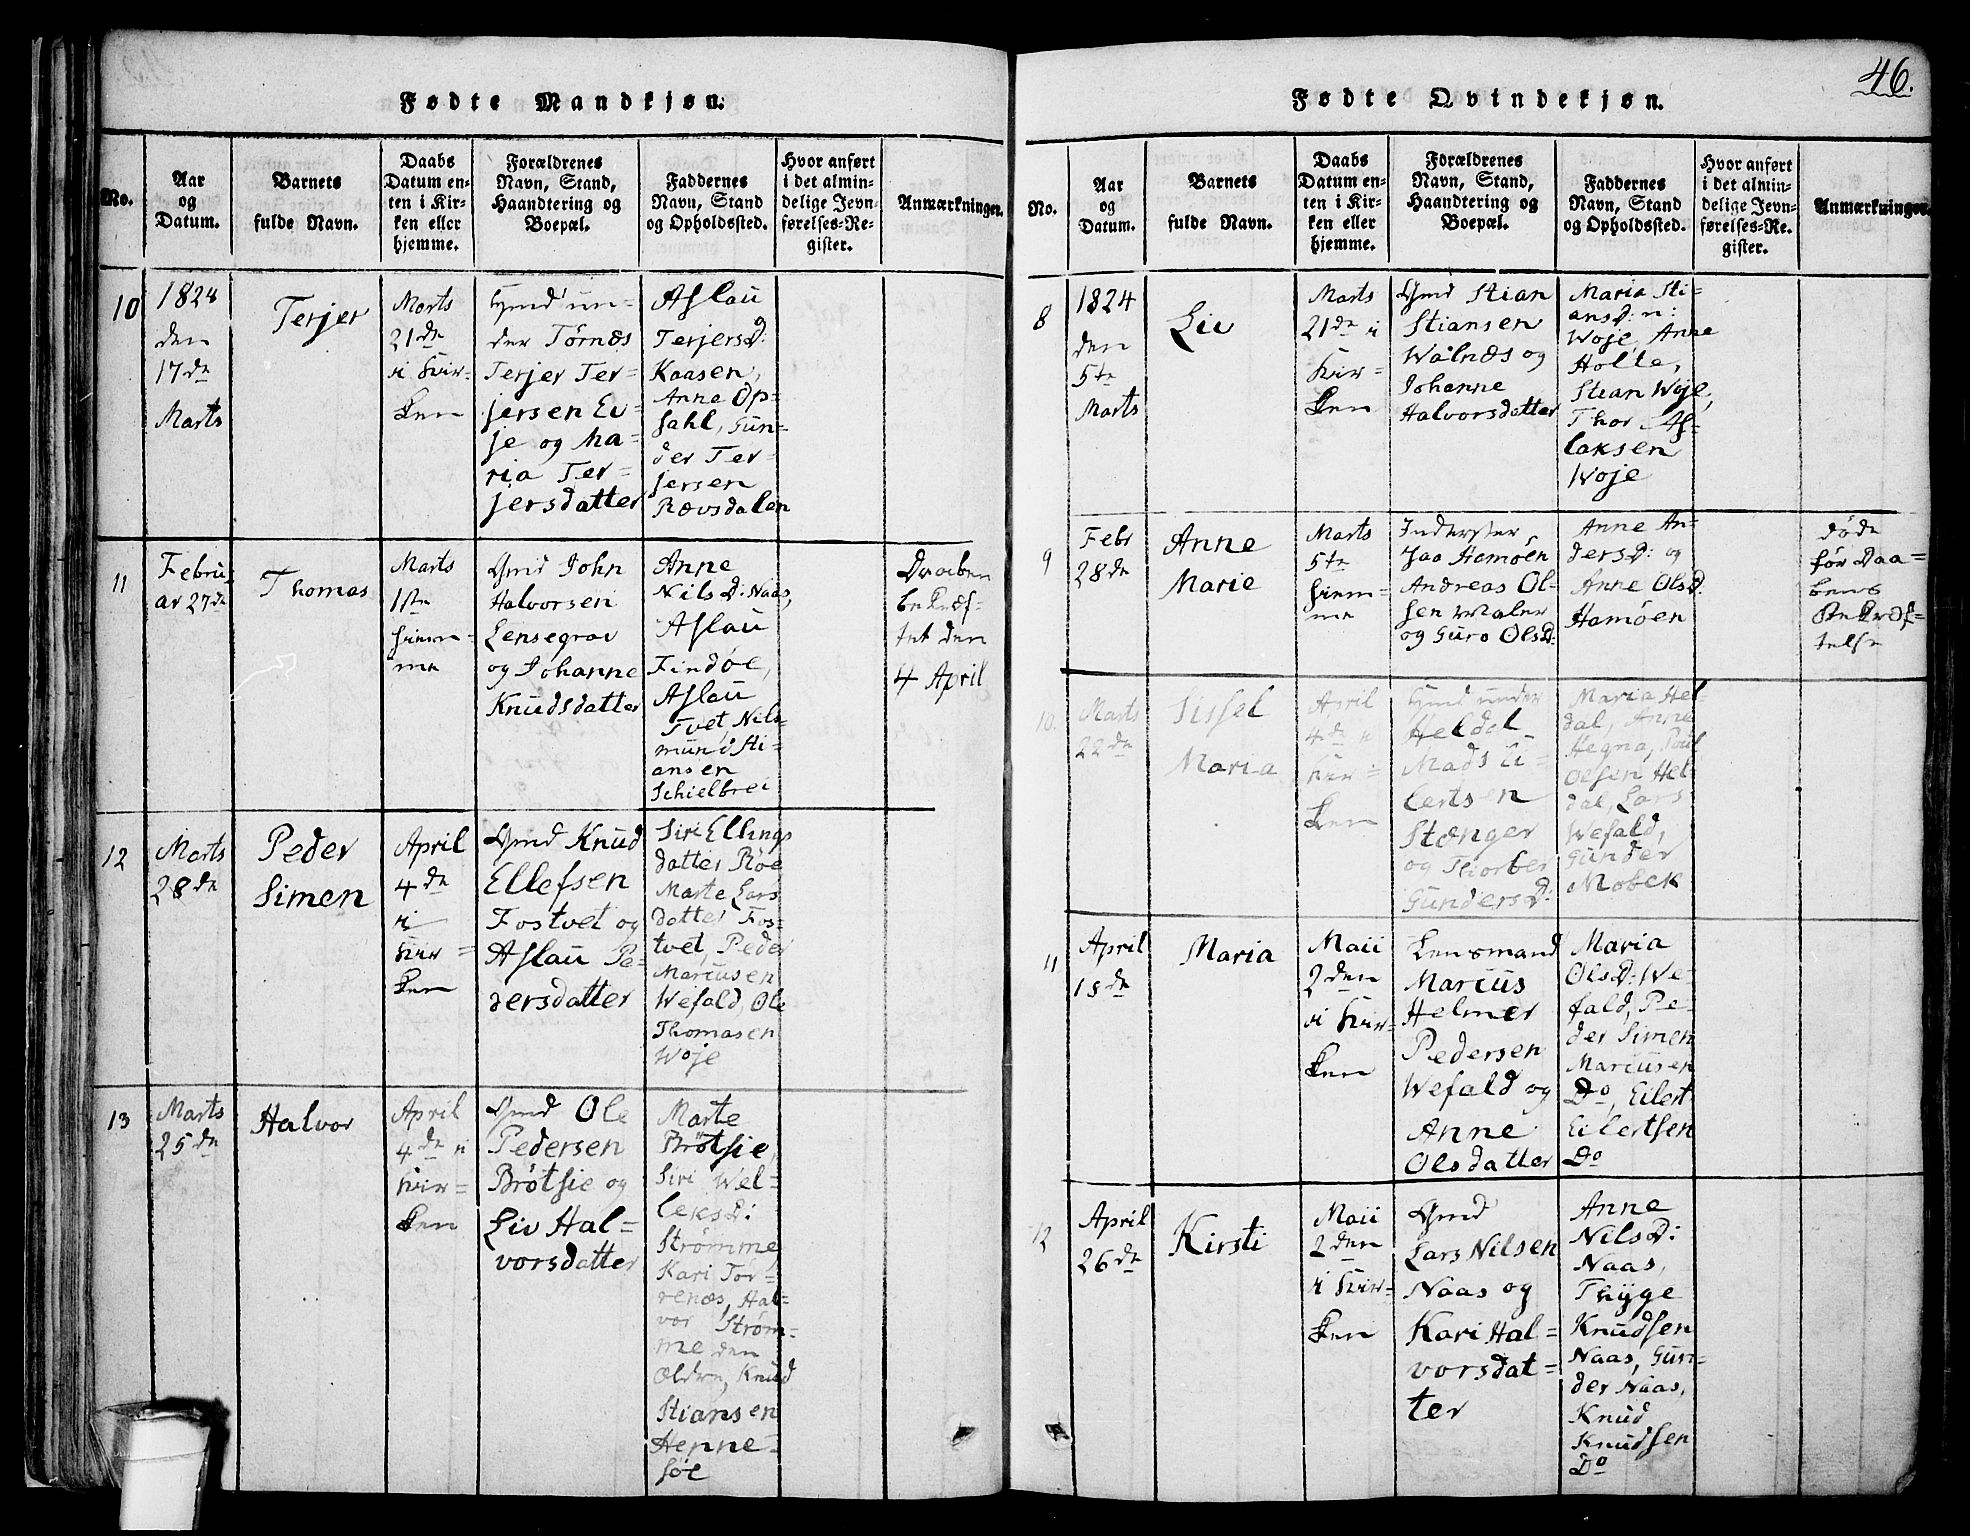 Fødte Mandkjøn.
No.
Aar
og
Datum.
Barnets
fulde Navn.
Daabs
Datum en-
ten i Kir-
ken eller
hjemme.
Forældrenes
Navn, Stand,
Haandtering og
Boepæl.
Faddernes
Navn, Stand
og Opholdssted.
Hvor anført
i det almin-
delige Jevn-
førelses-Re-
gister.
Anmærkninger.
10
1824
den
17de
Marts
Terjer
Marts
21de
i Kir=
ken
Gmd un=
der Tørnæs
Terjer Ter=
jersen Ei=
je og Ma=
ria Ter=
jersdatter
Aslau
TerjersD:
Kaasen,
Anne Op=
sahl, Gun=
der Ter=
jersen
Rævsdalen
11
Febru,
ar 27de
Thomas
Marts
1ste
hiem=
me
Gmd John
Halvorsen
Lensegrav
og Johanne
Knudsdatter
Anne
NilsD: Naas,
Aslau
Findøe,
Aslau
Tvet, Nils=
mund Sti=
ansen
Schielbrei
Daaben
bekræf=
tet den
4 April
12
Marts
28de
Peder
Simen
April
4de
i
Kir=
ken
Gmd Knud
Ellefsen
Fostvet og
Aslau Pe=
dersdatter
Siri Ellings
datter Røe
Marte Lars
datter Fos=
tvet, Peder
Marcusen
Wefald, Ole
Thomasen
Woje
13
Marts
25de
Halvor
April
4de i
Kir=
ken
Gmd Ole
Pedersen
Brøtsie og
Liv Hal=
vorsdatter
Marte
Brøtsie,
Siri Wel=
leksD:
Strømme,
Kari Tor=
renæs, Hal=
vor Strøm=
me den
Ældre, Knud
Stiansen
Henne=
søe
46.
Fødte Qvindekjøn.
No.
Aar
og
Datum.
Barnets
fulde Navn.
Daabs
Datum en-
ten i Kir-
ken eller
hjemme.
Forældrenes
Navn, Stand,
Haandtering og
Boepæl.
Faddernes
Navn, Stand
og Opholdssted.
Hvor anført
i det almin-
delige Jevn-
førelses-Re-
gister.
Anmærkninger.
8
1824
den
5te
Marts
Liv
Marts
21de i
Kir=
ken
Gmd Stian
Stiansen
Walnæs og
Johanne
Halvorsdatter
Maria Sti=
ansD: n:
Woje, Anne
Holte,
Stean Woje,
Thor As=
laksen
Woje
9
Febr
28de
Anne
Marie
Marts
5te
hiem=
me
Inderster
paa Hamøen
Andreas Ol=
sen Maler
og Guro OlsD:
Anne An=
dersD: og
Anne OlsD:
Hamøen
døde
før Daa=
bens
Bekræf=
telse
10.
Marts
22de
Sissel
Maria
April
4de i
Kir=
ken
Gmd under
Heldal
Mads Ei=
lertsen
Stænger
og Thorber
GundersD:
Maria Hel
dal, Anne
Hegna, Poul
Olsen Hel=
dal, Lars
Wefald,
Gunder
Mobek
11
April
18de
Maria
Maii
2den
i Kir=
ken
Lensmand
Marcus
Helmer
Pedersen
Wefald og
Anne
Olsdatter
Maria
OlsD: We=
fald, Pe=
der Simen
Marcusen
Do, Eilert
Eilertsen
Do
12
April
26de
Kirsti
Maii
2den
i Kir=
ken
Gmd
Lars Nilsen
Naas og
Kari Hal=
vorsdat=
ter
Anne
NilsD:
Naas,
Thyge
Knudsen
Naas, Gun=
der Naas,
Knud
Knudsen
Do